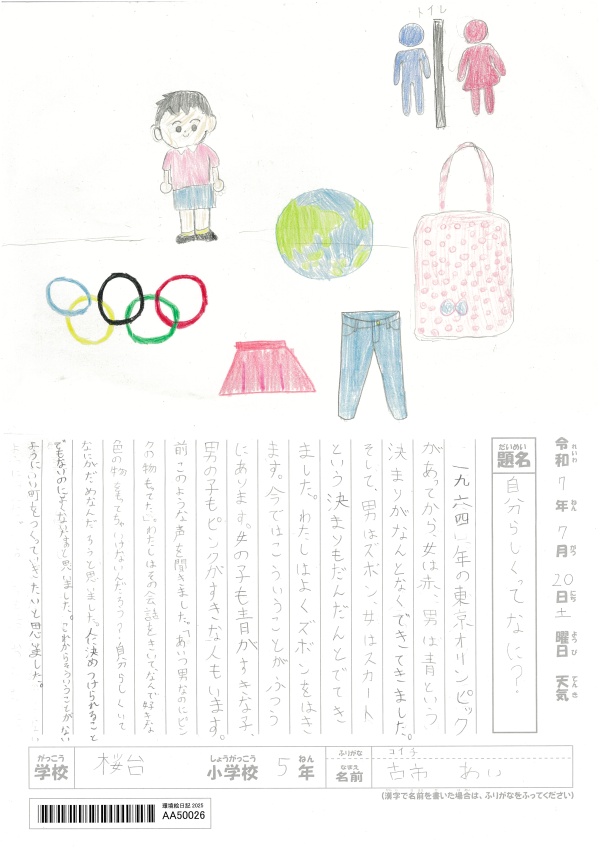 トイレ
令和7年7月20日土曜日 天気
れいわ ねん がつ にち ようび てんき
だいめい
題名
自分らしくってなに?
一九六四年の東京オリンピック
があってから、女は赤、男は青という
決まりがなんとなくできてきました。
そして、男はズボン、女はスカート
という決まりもだんだんとでてき
ました。わたしはよくズボンをはき
ます。今ではこういうことがふつう
にあります。女の子も青がすきな子、
男の子もピンクがすきな人もいます。
前このような声を聞きました。「あいつ男なのにピン
クの物もってた。」わたしはその会話をきいて、なんで好きな
色の物をもってちゃいけないんだろう?自分らしくいて
なにがだめなんだろうと思いました。人に決めつけられること
でもないのによくないなあと思いました。これからそういうことがない
ようにいい町をつくっていきたいと思いました。
がっこう
学校
桜台
しょうがっこう
小学校
5
ねん
年
ふりがな
コイチ
なまえ
名前
古市 あい
(漢字で名前を書いた場合は、ふりがなをふってください)
環境絵日記 2025
AA50026